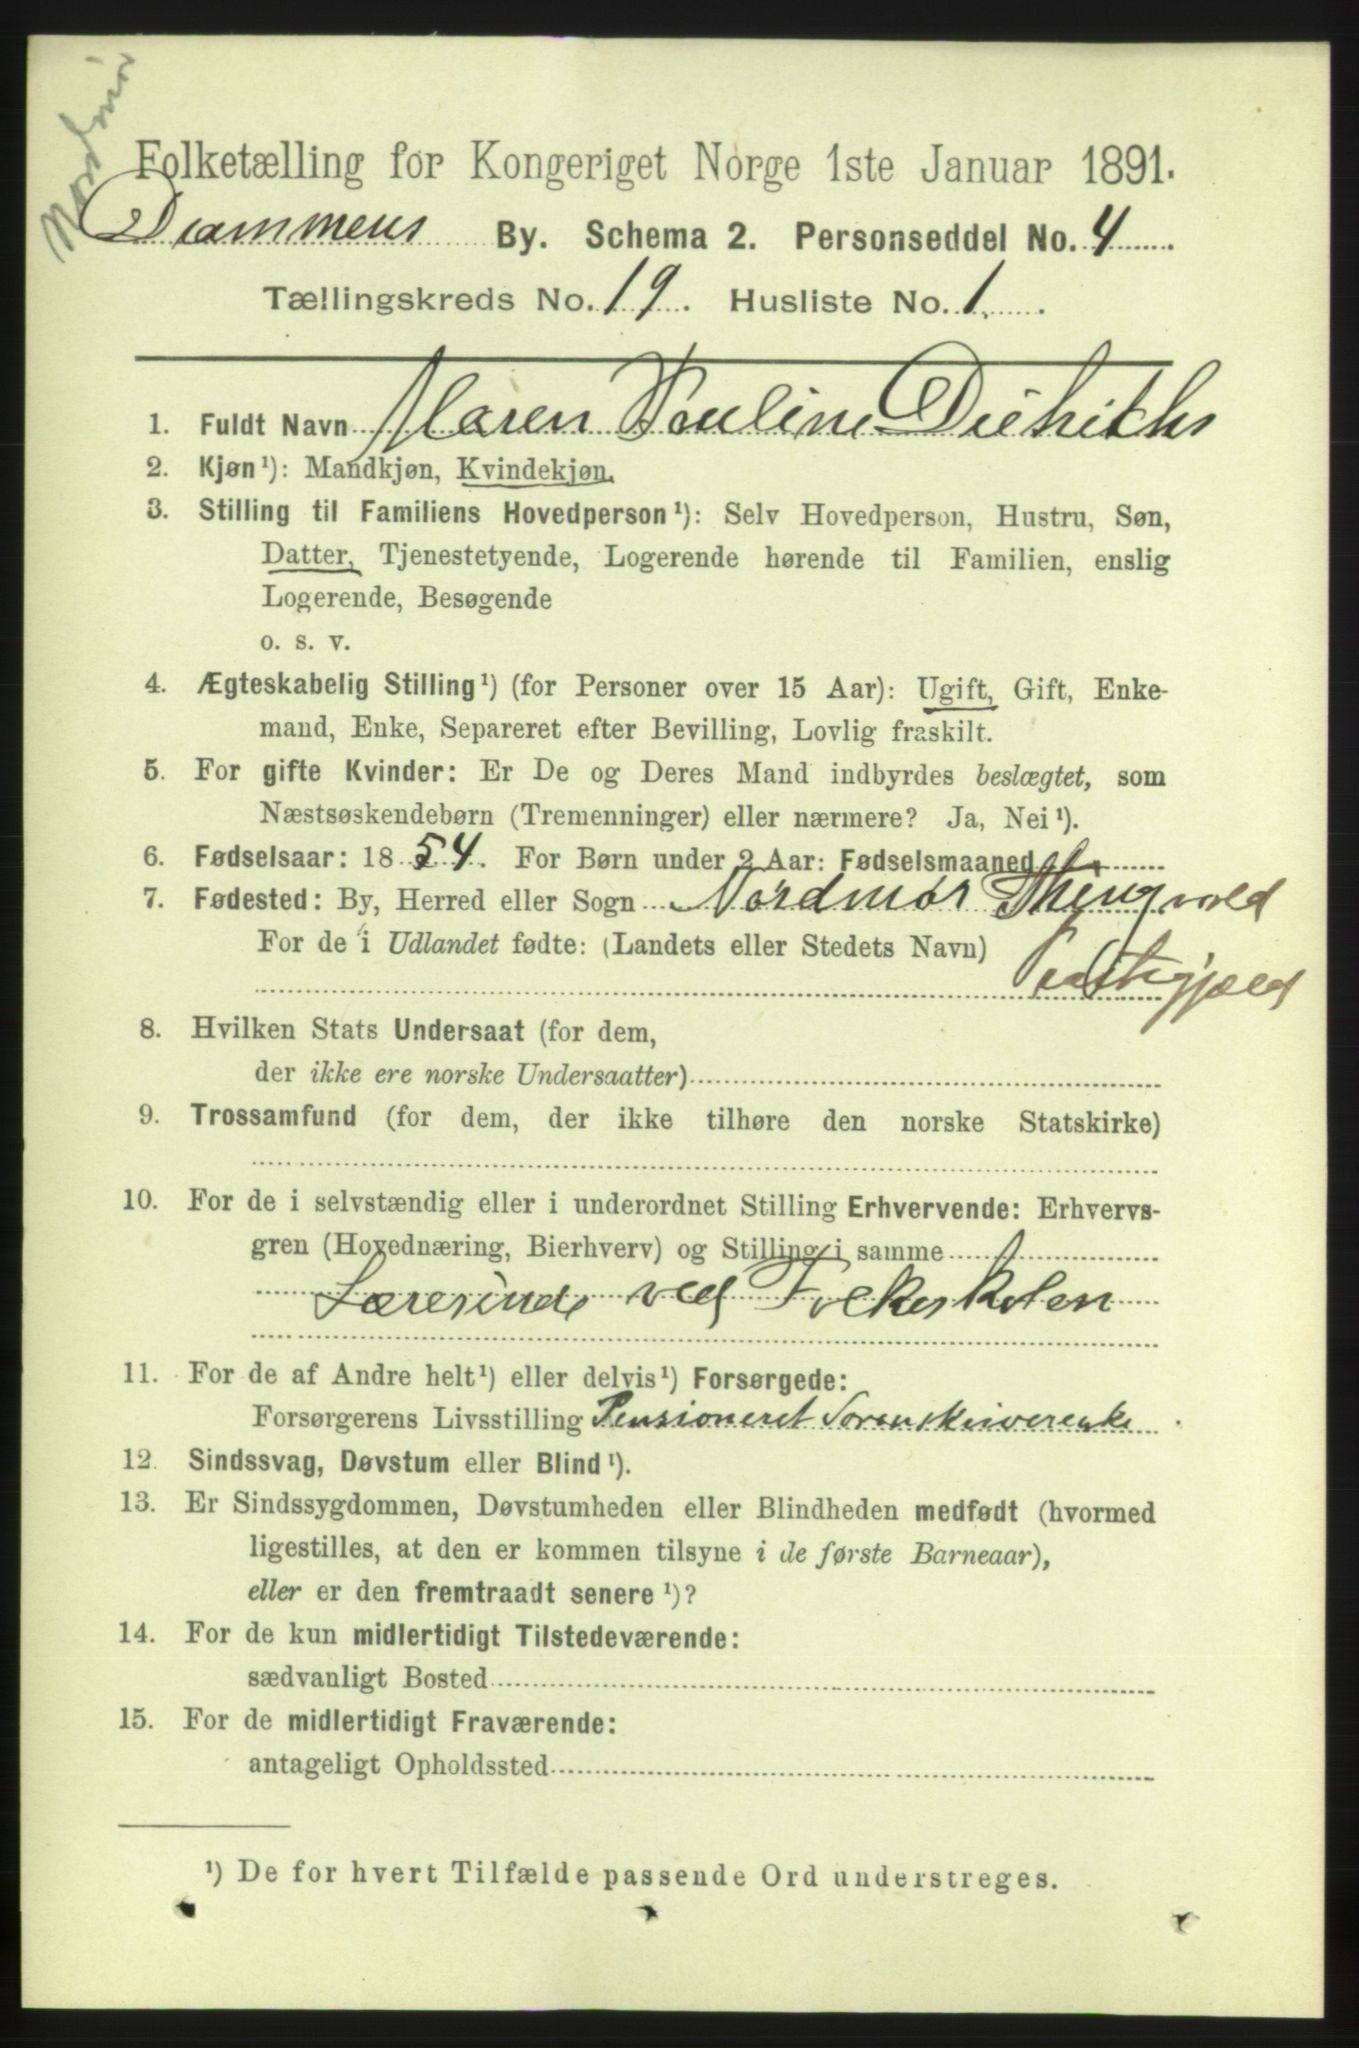 Nordmør
Folketælling for Kongeriget Norge 1ste Januar 1891.
Drammens By. Schema 2. Personseddel No. 4
Tællingskreds No. 19. Husliste No. 1.
1. Fuldt Navn Maren Pauline
2. Kjøn¹): Mandkjøn, Kvindekjøn.
3. Stilling til Familiens Hovedperson¹): Selv Hovedperson, Hustru, Søn,
Datter, Tjenestetyende, Logerende hørende til Familien, enslig
Logerende, Besøgende
o. s. v.
4. Ægteskabelig Stilling¹) (for Personer over 15 Aar): Ugift, Gift, Enke-
mand, Enke, Separeret efter Bevilling, Lovlig fraskilt.
5. For gifte Kvinder: Er De og Deres Mand indbyrdes beslægtet, som
Næstsøskendebørn (Tremenninger) eller nærmere? Ja, Nei¹).
6. Fødselsaar: 1854. For Børn under 2 Aar: Fødselsmaaned
7. Fødested: By, Herred eller Sogn Nordmør Thingvold
For de i Udlandet fødte: (Landets eller Stedets Navn) Præstegjæld
8. Hvilken Stats Undersaat (for dem,
der ikke ere norske Undersaatter)
9. Trossamfund (for dem, der ikke tilhøre den norske Statskirke)
10. For de i selvstændig eller i underordnet Stilling Erhvervende: Erhvervs-
gren (Hovednæring, Bierhverv) og Stilling i samme
Lærerinde ved Folkeskolen
11. For de af Andre helt¹) eller delvis¹) Forsørgede:
Forsørgerens Livsstilling Pensioneret Sorenskriverenke
12. Sindssvag, Døvstum eller Blind¹).
13. Er Sindssygdommen, Døvstumheden eller Blindheden medfødt (hvormed
ligestilles, at den er kommen tilsyne i de første Barneaar),
eller er den fremtraadt senere¹)?
14. For de kun midlertidigt Tilstedeværende:
sædvanligt Bosted
15. For de midlertidigt Fraværende:
antageligt Opholdssted
¹) De for hvert Tilfælde passende Ord understreges.